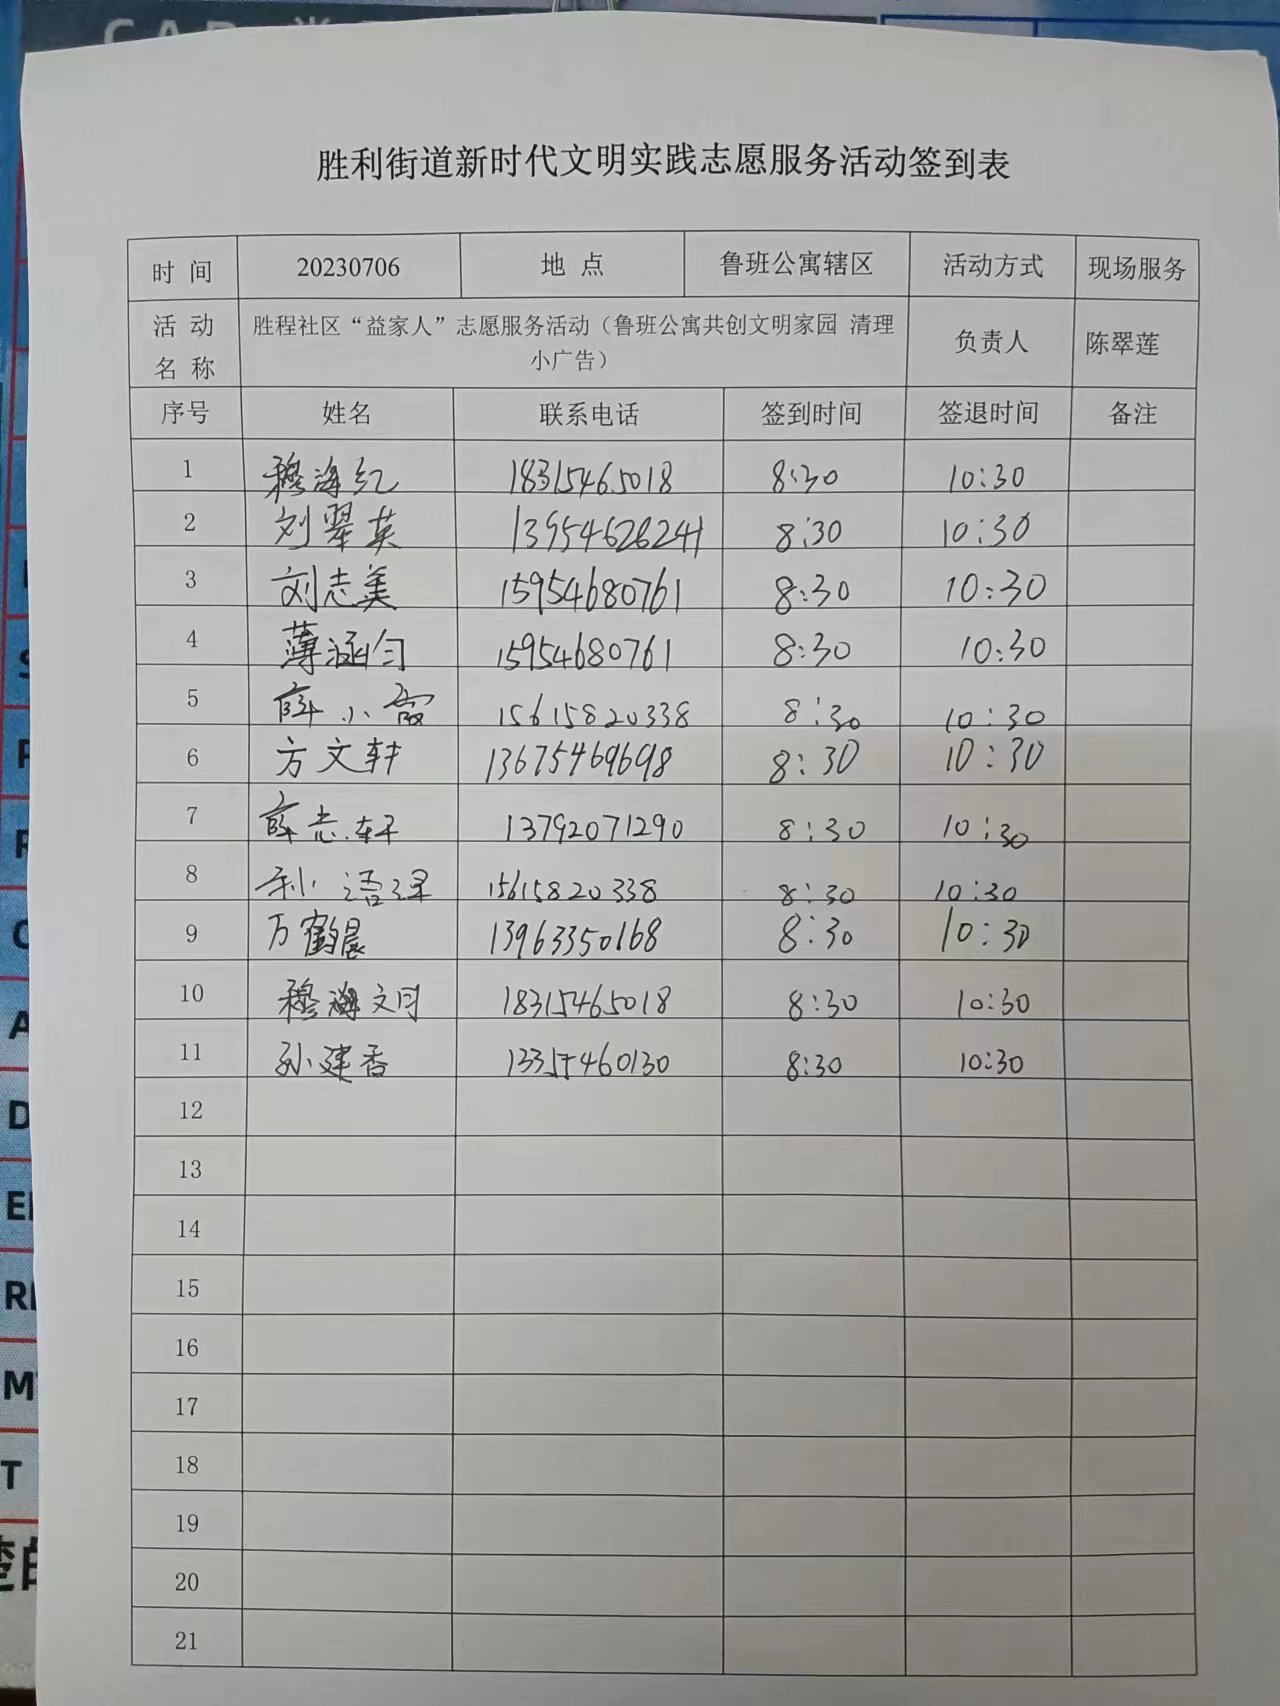 胜利街道新时代文明实践志愿服务活动签到表
时 间 20230706 地 点 鲁班公寓辖区 活动方式 现场服务
活 动 名 称 胜程社区“益家人”志愿服务活动（鲁班公寓共创文明家园 清理 小广告） 负责人 陈翠莲
序号 姓名 联系电话 签到时间 签退时间 备注
1 穆海红 18315465018 8:30 10:30
2 刘翠英 13954626241 8:30 10:30
3 刘志美 15954680761 8:30 10:30
4 薄涵匀 15954680761 8:30 10:30
5 薛小霞 15615820338 8:30 10:30
6 方文轩 13675469698 8:30 10:30
7 薛志轩 13792071290 8:30 10:30
8 15615820338 8:30 10:30
9 万鹤晨 13963350168 8:30 10:30
10 穆海文月 18315465018 8:30 10:30
11 孙建香 8:30 10:30
12
13
14
15
16
17
18
19
20
21